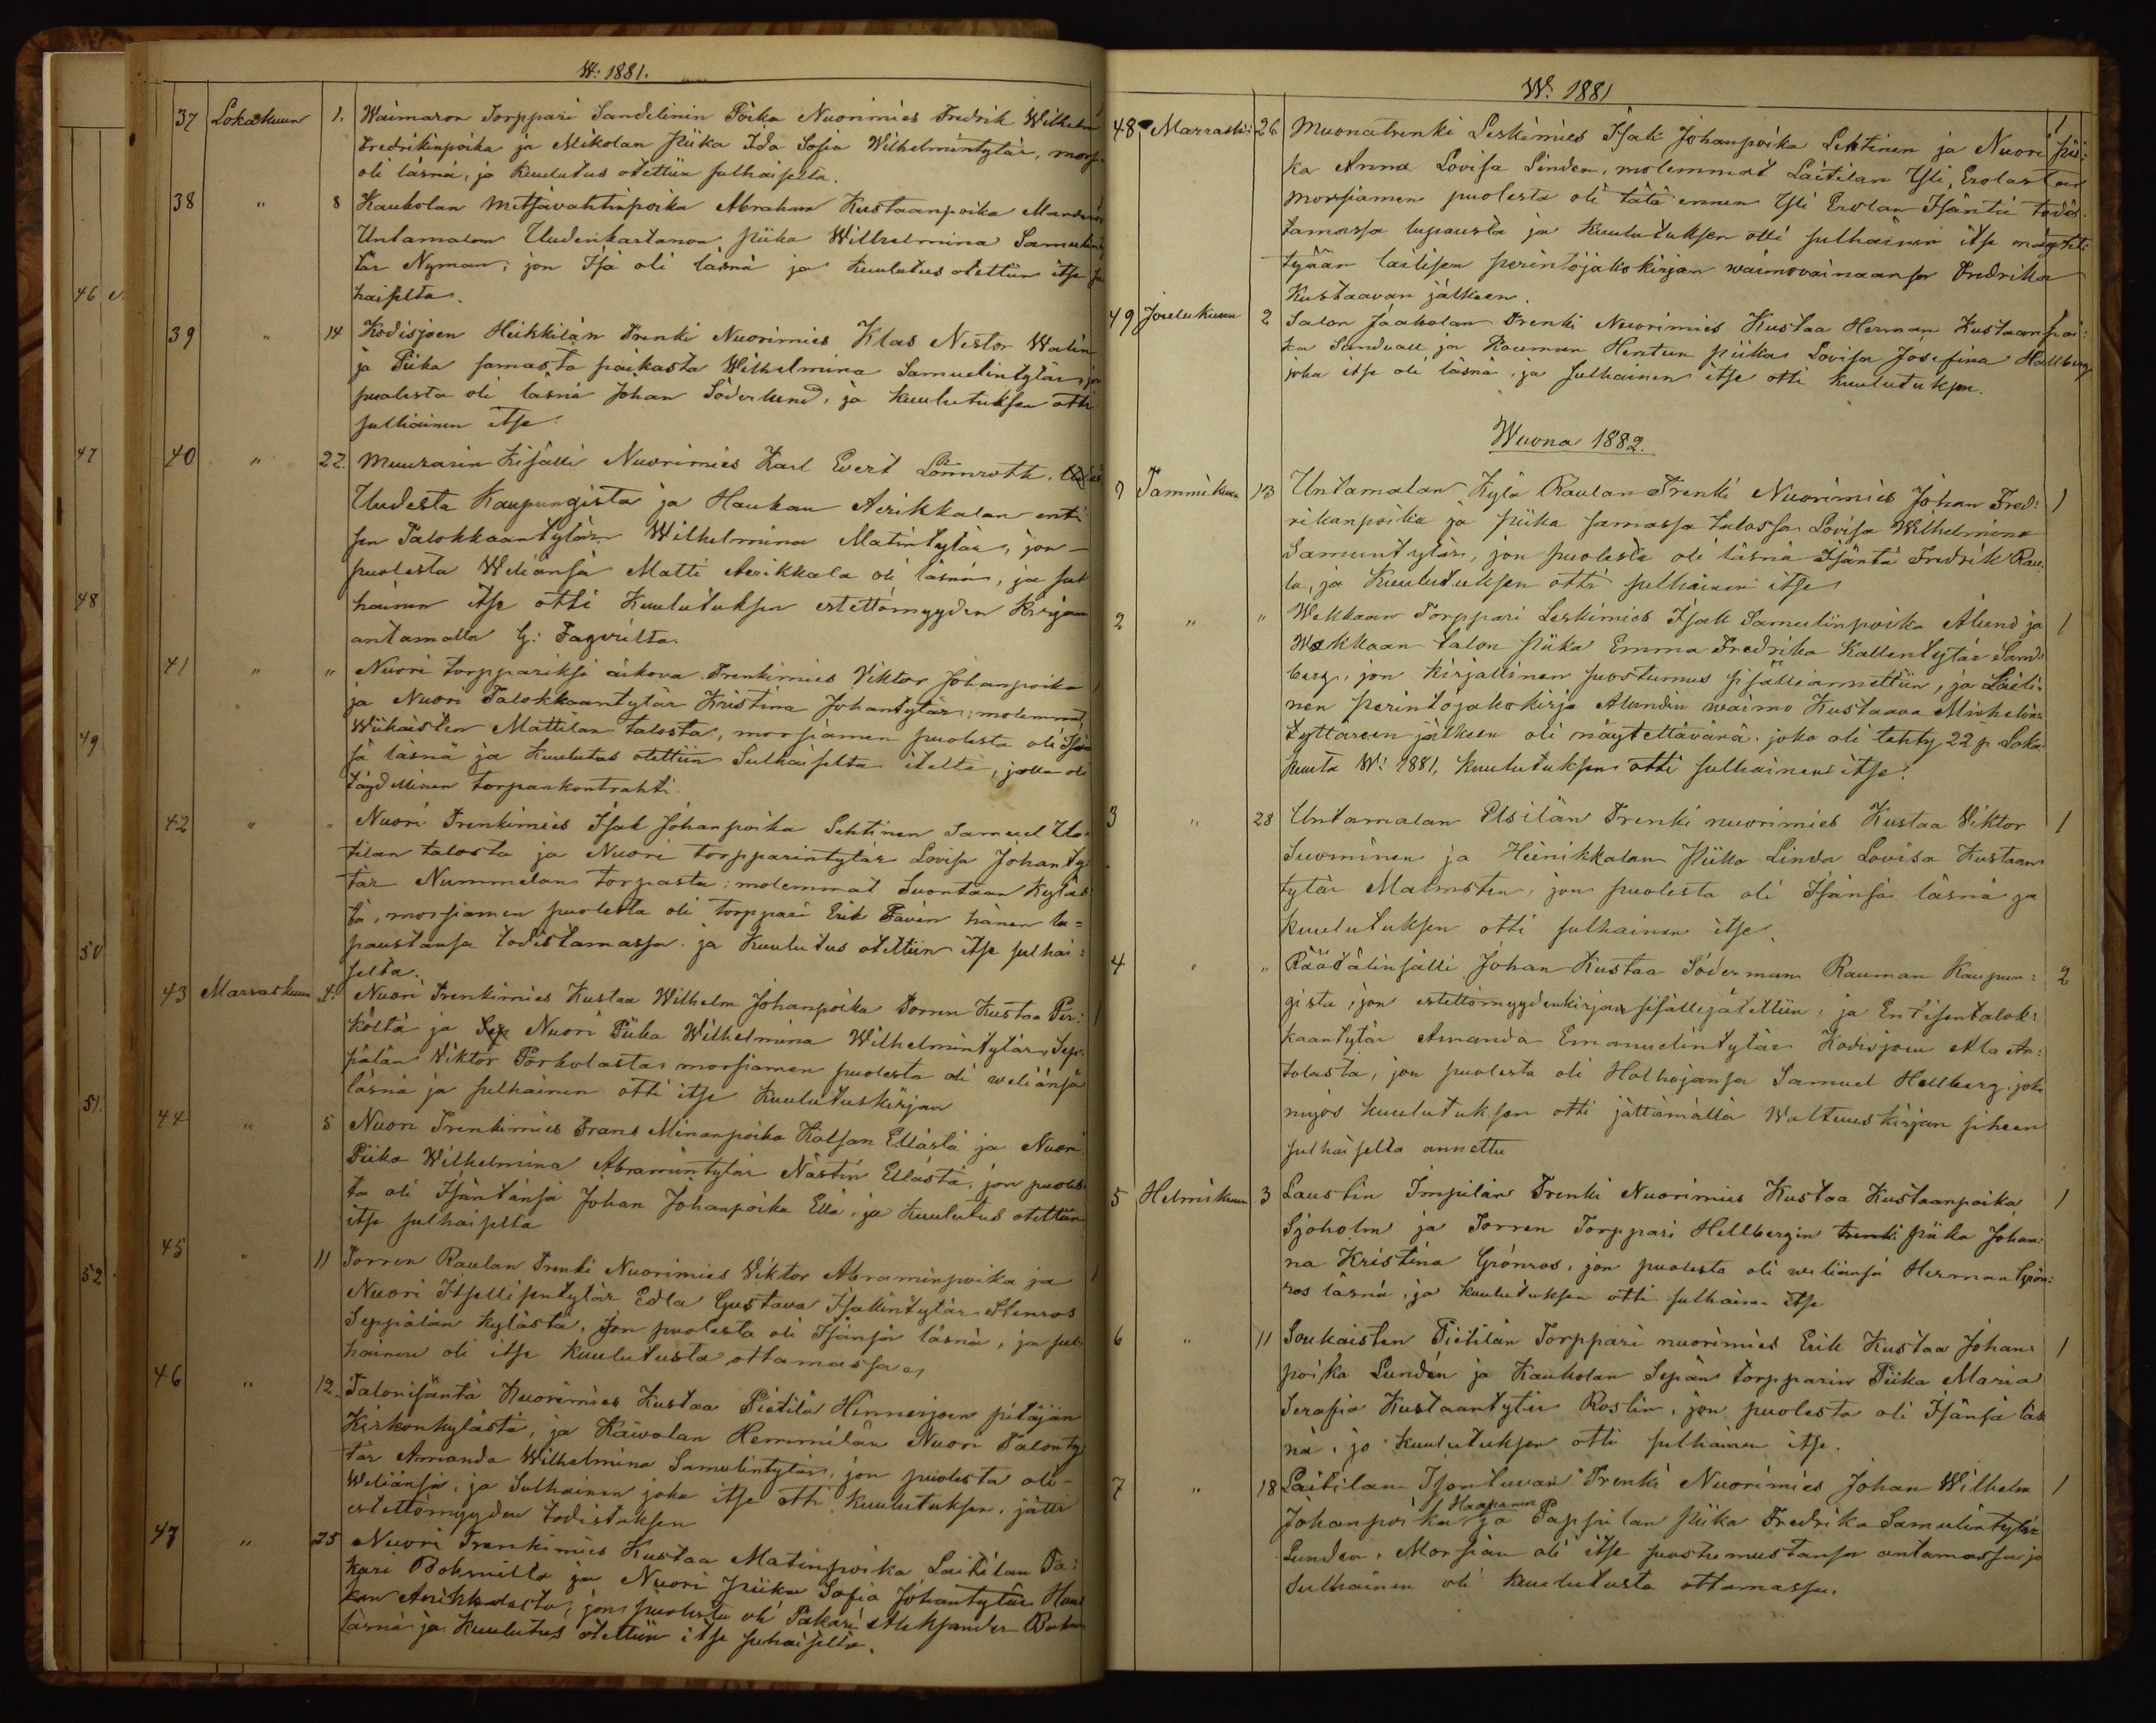 W: 1881.
37 Lokakuun 1. Waimaron Torppari Sandelinin Poika Nuorimies Fredrik Wilhelm
Fredrikinpoika ja Mikolan Piika Ida Sofia Wilhelmintytär, morsi
oli läsnä, ja kuulutus otettiin sulhaiselta.
38 " 8 Kaukolan Metsävahtinpoika Abraham Kustaanpoika Mander
Untamalan Uudenkartanon Piika Wilhelmina Samuelin
tär Nyman, jon Isä oli läsnä ja kuulutus otettiin itse su
haiselta.
39 " 14 Kodisjoen Heikkilän Trenki Nuorimies Klas Nestor Walin
ja Piika samasta paikasta Wilhelmina Samuelintytär, jon
puolesta oli läsnä Johan Söderlund, ja kuulutuksen otti
sulhainen itse.
40 " 22. Muurarin Kisälli Nuorimies Karl Evert Lönnroth,
Uudesta Kaupungista ja Haukan Aerikkalan enti
sen Talokkaantytär Wilhelmina Matintytär, jon
puolesta Weliänsä Matti Aerikkala oli läsnä, ja sul
hainen itse otti Kuulutuksen estettömyyden Kirjan
antamalla
41 " " Nuori torppariksi aikova Trenkimies Viktor Johanpoika
ja Nuori Talokkaantytär Kristina Johantytär; molemmat
Wiikaisten Mattilan talosta, morsiamen puolesta oli Isän
sä läsnä ja Kuulutus otettiin Sulhaiselta itseltä, jolla oli
täydellinen torpankontrahti.
42 " " Nuori Trenkimies Isak Johanpoika Lehtinen Samuel Uto
tilan talosta ja Nuori torpparintytär Lovisa Johanty
tär Nummelan torpasta: molemmat Suontaan Kyläs
tä, morsiamen puolesta oli torppari Erik Favén hänen lu=
paustansa todistamassa ja Kuulutus otettiin itse sulhai:
selta.
43 Marraskuun 4. Nuori Trenkimies Kustaa Wilhelm Johanpoika Torren Kustaa Per:
költä ja Nuori Piika Wilhelmina Wilhelmintytär, Sep:
pälän Viktor Porholasta, morsiamen puolesta oli weliänsä
läsnä ja sulhainen otti itse Kuulutuskirjan
44 " 5 Nuori Trenkimies Frans Minanpoika Kalsan Ellästä ja Nuori
Piika Wilhelmina Abramintytär Nästin Ellästä, jon puoles
ta oli Isäntänsä Johan Johanpoika Ellä, ja Kuulutus otettiin
itse sulhaiselta
45 " 11 Torren Raulan Trenki Nuorimies Viktor Abraminpoika ja
Nuori Itsellisentytär Edla Gustava Isakintytär Stenros
Seppälän Kylästä, Jon puolesta oli Isänsä läsnä, ja sul
hainen oli itse Kuulutusta ottamassa
46 " 12. Talonisäntä Nuorimies Kustaa Pietilä Hinnerjoen pitäjän
Kirkonkylästä, ja Käivolan Hemmilän Nuori Talonty
tär Amanda Wilhelmina Samulintytär, jon puolesta oli
Weliänsä, ja Sulhainen joka itse otti Kuulutuksen, jätti
estettömyyden todistuksen
47 " 25 Nuori Trenkimies Kustaa Matinpoika Laitilan Pa:
kari Bohmilta ja Nuori Piika Sofia Johantytär Hau
kan Aerikkalasta, jon puolesta oli Pakari Aleksander Bohm
läsnä ja Kuulutus otettiin itse suhaiselta.
46
47
48
49
50
51.
52
W: 1881
48 Marrask: 26 Muonatrenki Leskimies Isak Johanpoika Lehtinen ja Nuori Pii: 1
ka Anna Lovisa Linden, molemmat Laitilan Yli Erolastan
morsiamen puolesta oli tätä ennen Yli Erolan Isäntä todis
tamassa lupausta ja Kuulutuksen otti sulhainen itse näytet
tyään laillisen perintöjakokirjan waimovainaansa Fredrika
Kustaavan jälkeen.
49 Joulukuun 2 Salon Jaakolan Trenki Nuorimies Kustaa Herman Kustaanpoi:
ka Sundvall ja Rauman Hentun piika Lovisa Josefina Hallberg
joka itse oli läsnä, ja sulhainen itse otti kuulutuksen.
Wuona 1882.
1 Tammikuun 13 Untamalan Kylä Raulan Trenki Nuorimies Johan Fred: 1
rikanpoika ja piika samassa talossa Lovisa Wilhelmina
Samuntytär, jon puolesta oli läsnä Isäntä Fredrik Rau:
la, ja Kuulutuksen otti sulhainen itse
2 " " Wekkaan Torppari Leskimies Isak Samulinpoika Ålund ja 1
Wekkaan talon Piika Emma Fredrika Kallentytär Sand:
berg, jon kirjallinen suostumus sisälleannettiin, ja Laili:
nen perintöjakokirja Alundin waimo Kustaava Michelin
tyttären jälkeen oli näytettävänä, joka oli tehty 22 p. Loka
kuuta W: 1881, Kuulutuksen otti sulhainen itse.
3 " 28 Untamalan Elsilän Trenki nuorimies Kustaa Viktor 1
Suominen ja Heinikkalan Piika Linda Lovisa Kustaan
tytär Malmsten, jon puolesta oli Isänsä läsnä ja
kuulutuksen otti sulhainen itse.
4 " " Räätälinsälli Johan Kustaa Söderman Rauman Kaupun: 2
gista, jon estettömyydenkirjan sisällejätettiin, ja Entisentalok:
kaantytär Amanda Emanuelintytär Kodisjoen Ala An:
tolasta, jon puolesta oli Holhojansa Samuel Hellberg, joka
myös kuulutuksen otti jättämällä Waltuuskirjan siheen
sulhaiselta annettu
5 Helmikuun 3 Laustin Impilän Trenki Nuorimies Kustaa Kustaanpoika 1
Sjöholm ja Torren Torppari Hellbergin trenki piika Johan:
na Kristina Grönros, jon puolesta oli weliänsä Herman Grön:
ros läsnä, ja kuulutuksen otti sulhainen itse
6 " 11 Soukaisten Pietilän Torppari nuorimies Erik Kustaa Johan 1
poika Lundén ja Kaukolan Sepän torpparin Piika Maria
Serafia Kustaantytär Roslin, jon puolesta oli Isänsä läs
nä, ja Kuulutuksen otti sulhainen itse.
7 " 18 Laitilan Isontuvan Trenki Nuorimies Johan Wilhelm 1
Johanpoika Haapanen ja Pappilan Piika Fredrika Samulintytär
Lunden. Morsian oli itse suostumustansa antamassa ja
Sulhainen oli kuulutusta ottamassa.